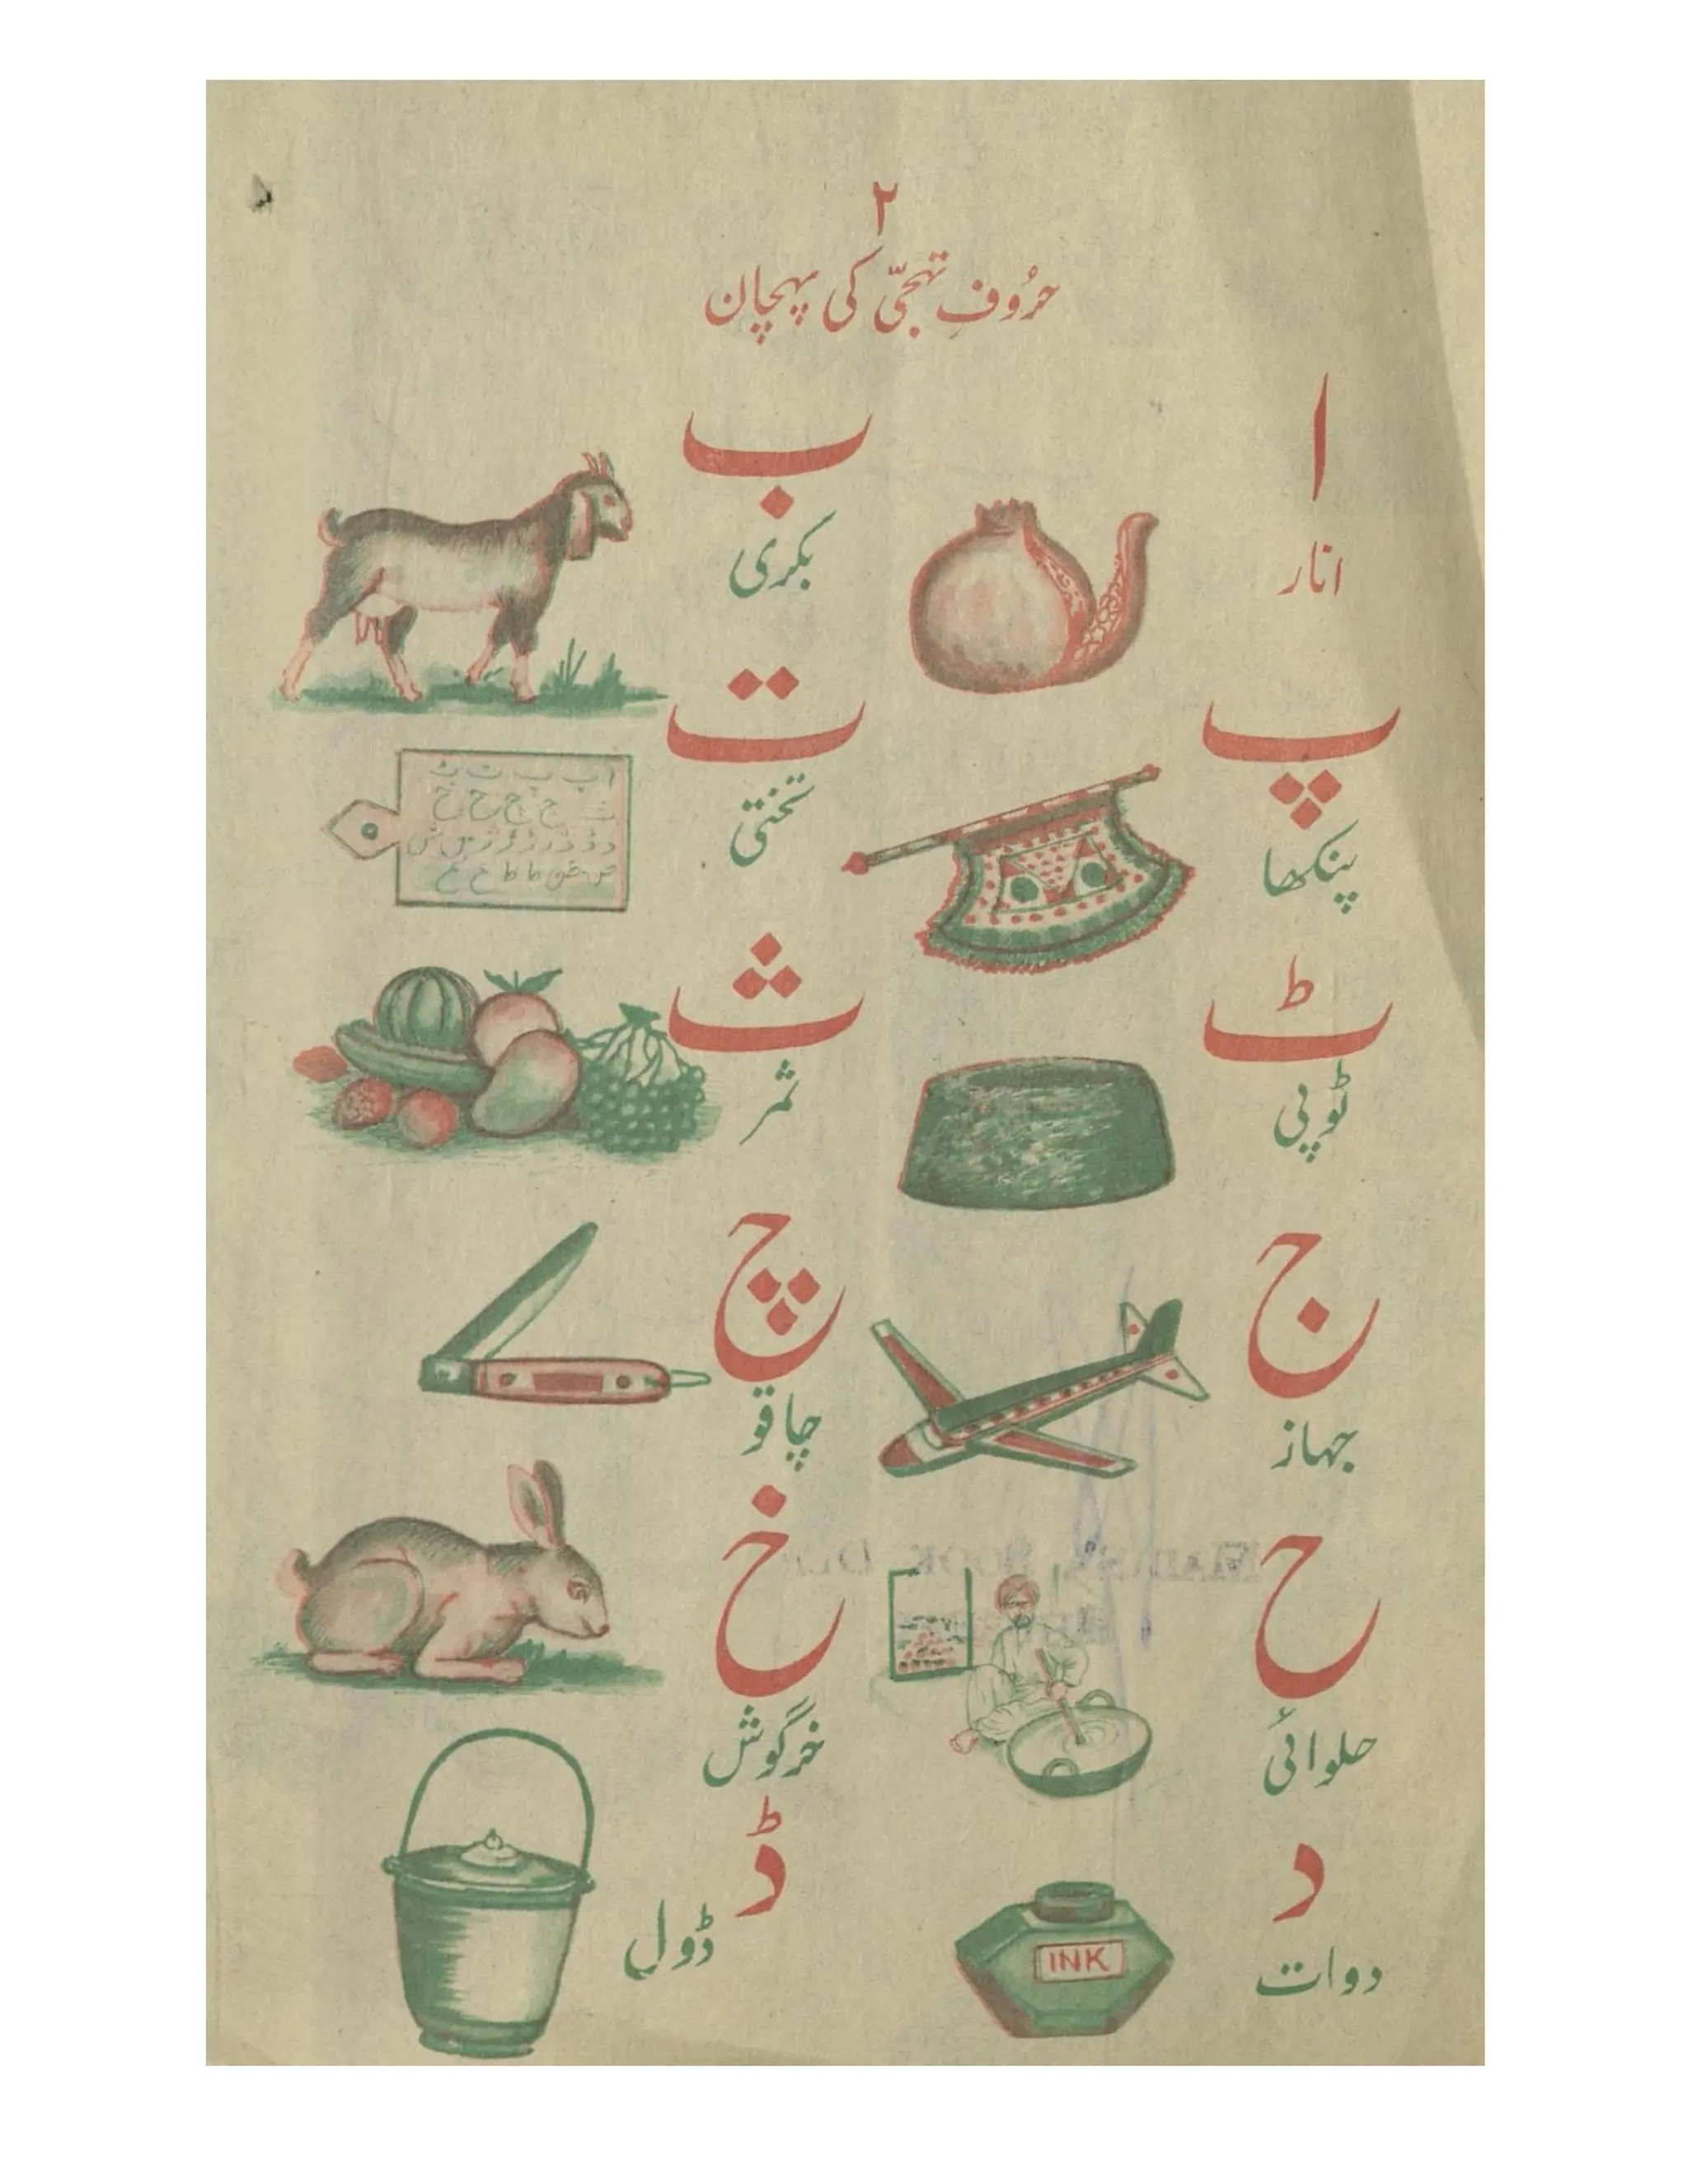 ۲
حرُوفِ تہجّی کی پہچان
ا
انار
ب
بکری
پ
پنکھا
ت
تختی
ا ب پ ت ٹ
ث ج چ ح خ
ٹ
ٹوپی
ث
ثمر
ج
جہاز
چ
چاقو
ح
حلوائی
خ
خرگوش
د
دوات
INK
ڈ
ڈول